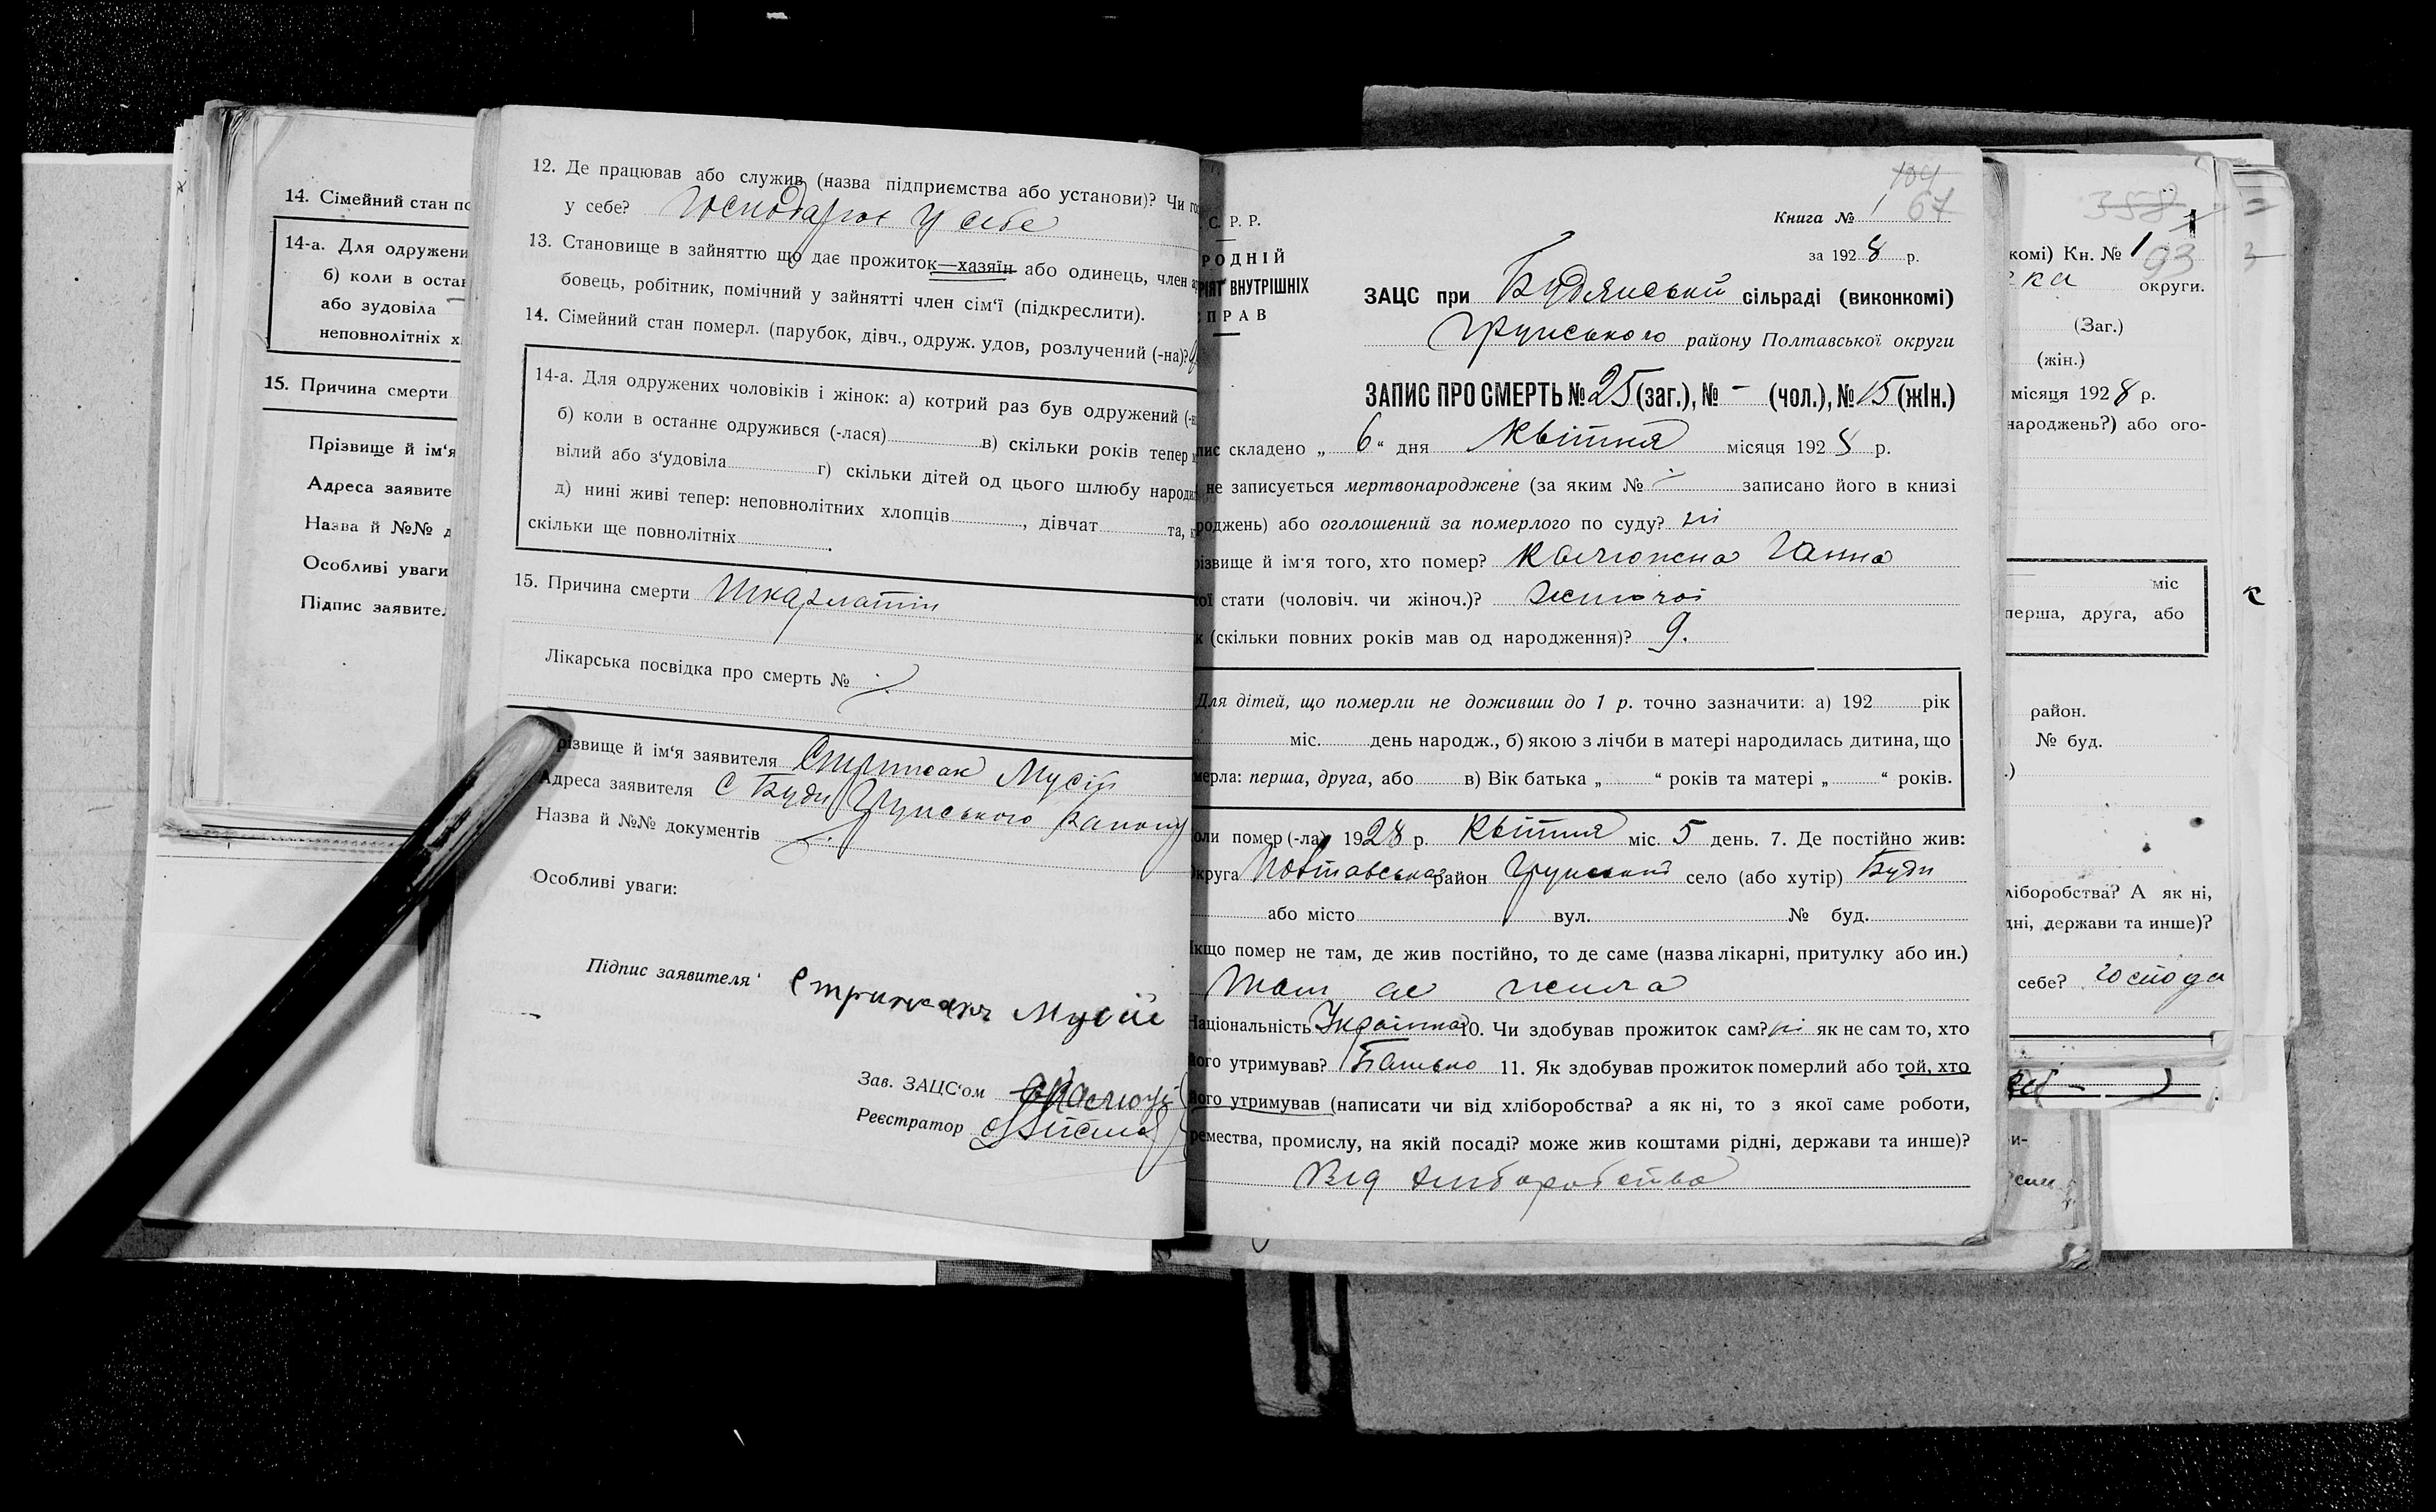 14. Сімейний стан по
14-а. Для одружени
б) коли в остан
або зудовіла
неповнолітніх х
15. Причина смерти
Прізвище й ім'я
Адреса заявите
Назва й №№ д
Особливі уваги
Підпис заявител
12. Де працював або служив (назва підприємства або установи)? Чи го
у себе? Господарює у себе
13. Становище в зайняттю що дає прожиток—хазяїн або одинець, член а
бовець, робітник, помічний у зайнятті член сім'ї (підкреслити).
14. Сімейний стан померл. (парубок, дівч., одруж. удов, розлучений (-на)?
14-а. Для одружених чоловіків і жінок: а) котрий раз був одружений (-н
б) коли в останнє одружився (-лася) в) скільки років тепер
вілий або з'удовіла г) скільки дітей од цього шлюбу народи
д) нині живі тепер: неповнолітних хлопців , дівчат та,
скільки ще повнолітніх .
15. Причина смерти Шкарлатін
Лікарська посвідка про смерть №
різвище й ім'я заявителя Стрижак Мусій
Адреса заявителя С Буди Грунського району
Назва й №№ документів
Особливі уваги:
Підпис заявителя Стрижакъ Мусій
Зав. ЗАЦС'ом
Реєстратор
С. Р. Р.
РОДНІЙ
РІЯТ ВНУТРІШНІХ
ПРАВ
104
67
Книга № 1
за 1928 р.
ЗАЦС при Будянській сільраді (виконкомі)
Грунського району Полтавської округи
ЗАПИС ПРО СМЕРТЬ № 25 (заг.), № - (чол.), № 15 (жін.)
пис складено „ 6 “ дня Квітня місяця 1928 р.
не записується мертвонароджене (за яким № - записано його в книзі
роджень) або оголошений за померлого по суду? ні
різвище й ім'я того, хто помер? Калюжна Ганна
кої стати (чоловіч. чи жіноч.)? жіночої
к (скільки повних років мав од народження)? 9.
Для дітей, що померли не доживши до 1 р. точно зазначити: а) 192 рік
міс. день народж., б) якою з лічби в матері народилась дитина, що
мерла: перша, друга, або в) Вік батька „ “ років та матері „ “ років.
оли помер (-ла) 1928 р. Квітня міс. 5 день. 7. Де постійно жив:
Округа Полтавська район Грунський село (або хутір) Буди
або місто вул. № буд.
Якщо помер не там, де жив постійно, то де саме (назва лікарні, притулку або ин.)
Там де жила
Національність Українка 10. Чи здобував прожиток сам? ні як не сам то, хто
його утримував? Батько 11. Як здобував прожиток померлий або той, хто
його утримував (написати чи від хліборобства? а як ні, то з якої саме роботи,
ремества, промислу, на якій посаді? може жив коштами рідні, держави та инше)?
Від хліборобства
358
93
комі) Кн. № 1
ка округи.
(Заг.)
(жін.)
місяця 1928 р.
народжень?) або ого-
міс
перша, друга, або
район.
№ буд.
.)
ліборобства? А як ні,
дні, держави та инше)?
себе? господа
и-